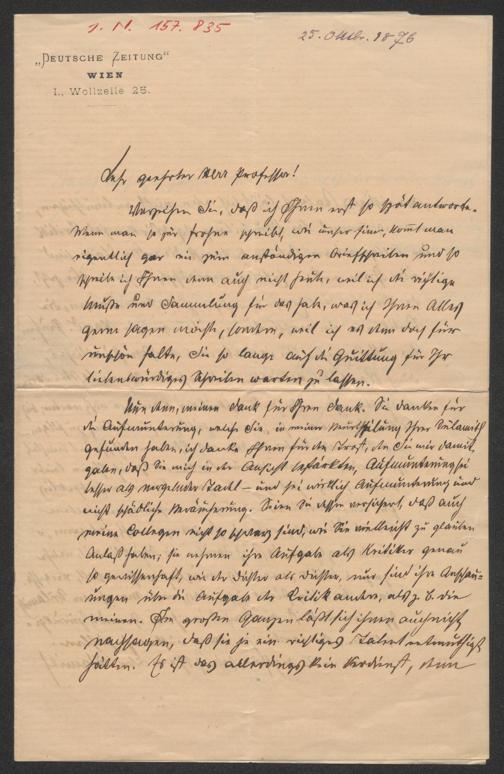 I. N. 157.835
25. Oktbr. 1876
„DEUTSCHE ZEITUNG“
WIEN
I., Wollzeile 25.
Sehr geehrter Herr Professor!
Verzeihen Sie, daß ich Ihnen erst so spät antworte.
Wenn man so zur Frohne schreibt, wie unser einer, kommt man
eigentlich gar nie zum anständigen Briefschreiben und so
schreibe ich Ihnen denn auch nicht heute, weil ich die richtige
Muße und Sammlung für das habe, was ich Ihnen Alles
gerne sagen möchte, sondern, weil ich es denn doch für
unschön halte, Sie so lange auf die Quittung für Ihr
liebenswürdiges Schreiben warten zu lassen.
Nun denn, meinen Dank für Ihren Dank. Sie danken für
die Aufmunterung, welche Sie in meiner Beurtheilung Ihrer Sulamith
gefunden haben, ich danke Ihnen für den Trost, den Sie mir damit
gaben, daß Sie mich in der Ansicht bestärkten, Aufmunterung sei
besser als nergelnder Tadel – und sei wirklich Aufmunterung und
nicht schädliche. Seien Sie dessen versichert, daß auch
meine Collegen nicht so schwarz sind, wie Sie vielleicht zu glauben
Anlaß haben; sie nehmen ihre Aufgabe als Kritiker genau
so gewissenhaft, wie der Dichter als Dichter, nur sind ihre Anschau-
ungen über die Aufgabe der Kritik andere, als z. B. die
meinen. Im großen Ganzen läßt sich ihnen auch nicht
nachsagen, daß sie je ein richtiges Talent entmuthigt
hätten. Es ist das allerdings kein Verdienst, denn